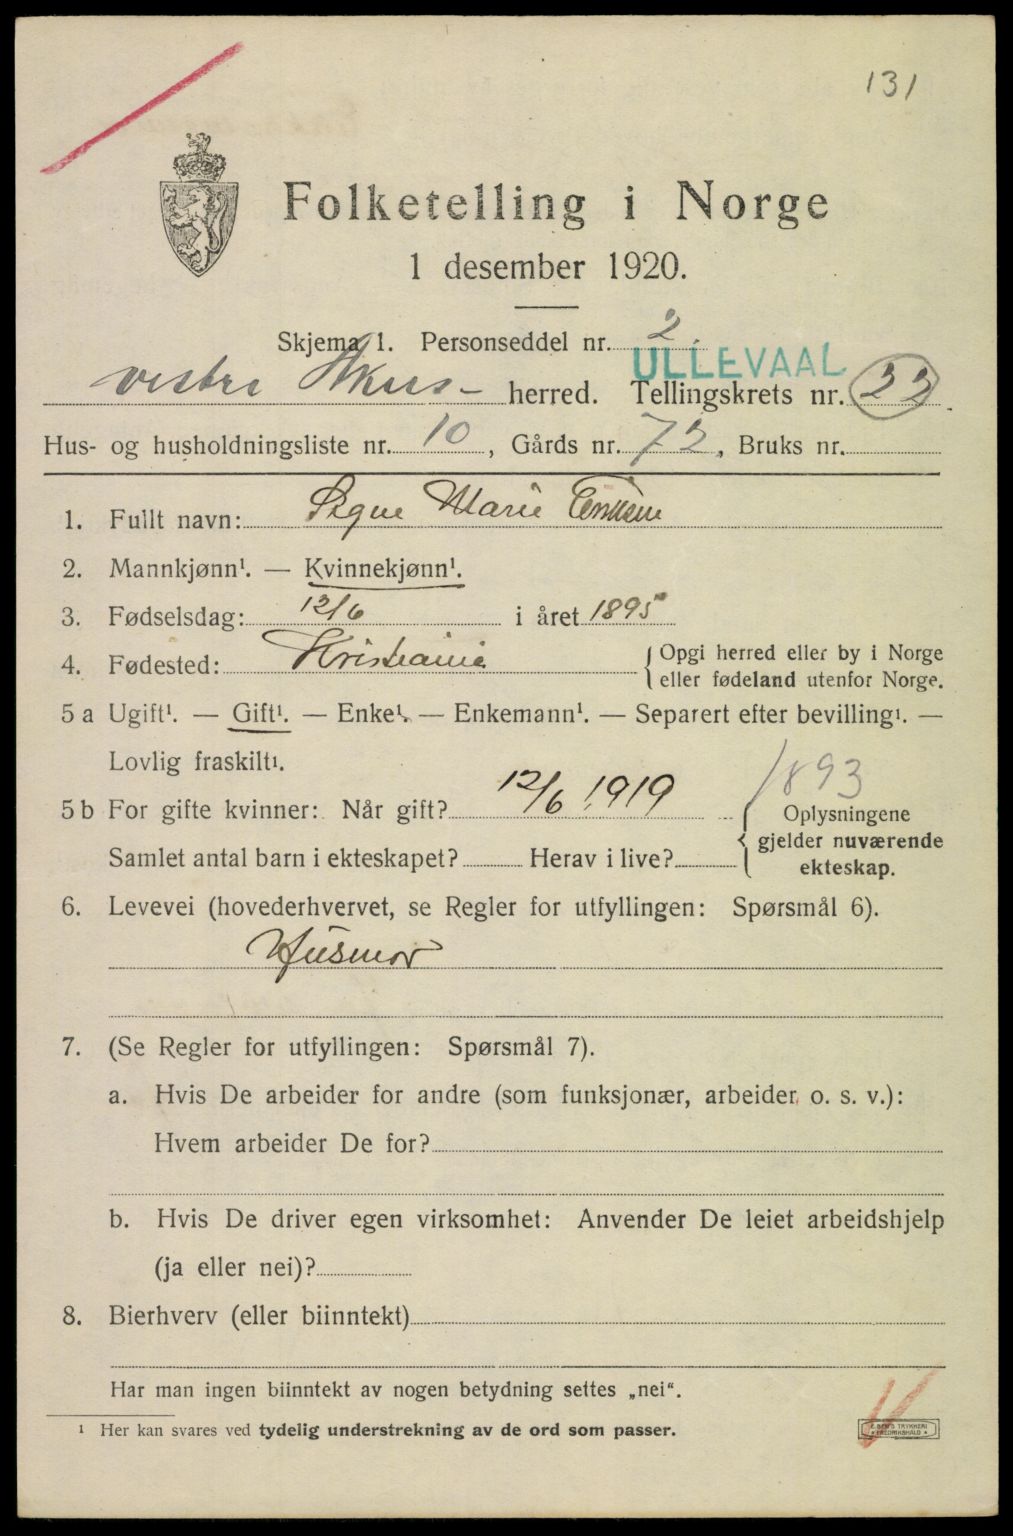 131
Folketelling i Norge
1 desember 1920.
Skjema 1. Personseddel nr. 2.
ULLEVAAL
vestre Akers herred. Tellingskrets nr. 22.
Hus- og husholdningsliste nr. 10, Gårds nr. 72, Bruks nr.
1. Fullt navn: Signe Marie
2. Mannkjønn¹. — Kvinnekjønn¹.
3. Fødselsdag: 12/6 i året 1895
4. Fødested: Kristiania { Opgi herred eller by i Norge
eller fødeland utenfor Norge.
5 a Ugift¹. — Gift¹. — Enke¹. — Enkemann¹. — Separert efter bevilling¹. —
Lovlig fraskilt¹.
1893
5 b For gifte kvinner: Når gift? 12/6 1919
Samlet antal barn i ekteskapet? Herav i live?
{ Oplysningene
gjelder nuværende
ekteskap.
6. Levevei (hovederhvervet, se Regler for utfyllingen: Spørsmål 6).
Husmor
7. (Se Regler for utfyllingen: Spørsmål 7).
a. Hvis De arbeider for andre (som funksjonær, arbeider o. s. v.):
Hvem arbeider De for?
b. Hvis De driver egen virksomhet: Anvender De leiet arbeidshjelp
(ja eller nei)?
8. Bierhverv (eller biinntekt)
Har man ingen biinntekt av nogen betydning settes „nei“.
¹ Her kan svares ved tydelig understrekning av de ord som passer.
TRYKKERI
FREDRIKSHALD